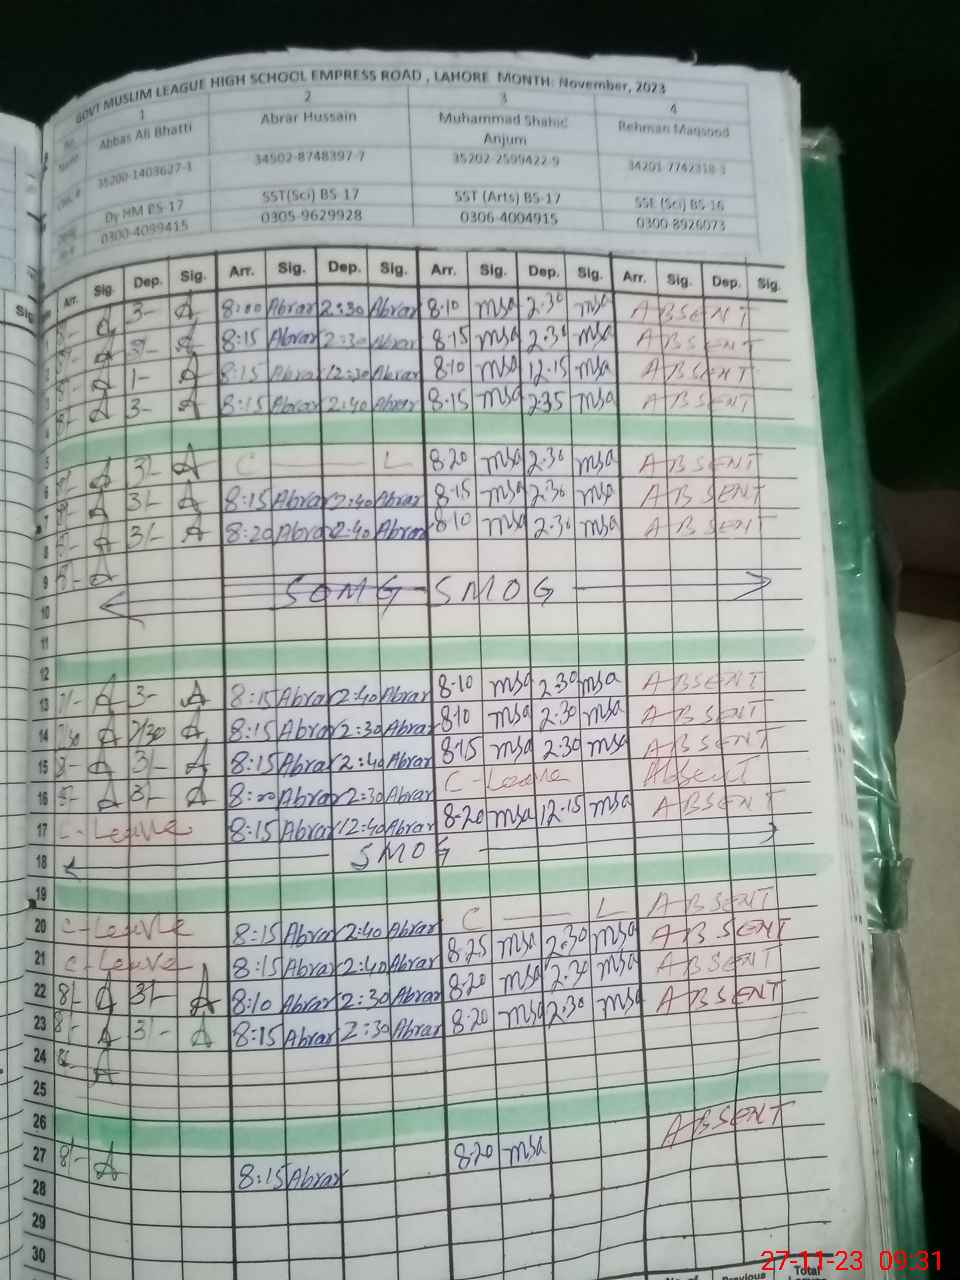 GOVT MUSLIM LEAGUE HIGH SCHOOL EMPRESS ROAD , LAHORE MONTH: November, 2023
1 2 3 4
Abbas Ali Bhatti Abrar Hussain Muhammad Shahid Anjum Rehman Maqsood
35200-1403627-1 34502-8748397-7 35202-2599422-9 34201-7742318-3
Dy HM BS-17 SST(Sci) BS-17 SST (Arts) BS-17 SSE (Sci) BS-16
0300-4099415 0305-9629928 0306-4004915 0300-8926073
Arr. Sig. Dep. Sig. Arr. Sig. Dep. Sig. Arr. Sig. Dep. Sig. Arr. Sig. Dep. Sig.
1 8- A 3- A 8:00 Abrar 2:30 Abrar 8-10 msa 2-30 msa ABSENT
2 A 3- A 8:15 Abrar 2:30 Abrar 8-15 msa 2-30 msa ABSENT
3 8- A 1- A 8:15 Abrar 12:30 Abrar 8-10 msa 12-15 msa ABSENT
4 8- A 3- A 8:15 Abrar 2:40 Abrar 8-15 msa 2-35 msa ABSENT
5
6 A 3- A C L 8-20 msa 2-30 msa ABSENT
7 A 3- A 8:15 Abrar 2:40 Abrar 8-15 msa 2-30 msa ABSENT
8 A 3- A 8:20 Abrar 2:40 Abrar 8-10 msa 2-30 msa ABSENT
9 A
10 SOMG - SMOG
11
12
13 A 3- A 8:15 Abrar 2:40 Abrar 8-10 msa 2-30 msa ABSENT
14 A 2/30 A 8:15 Abrar 2:30 Abrar 8-10 msa 2-30 msa ABSENT
15 8- A 3- A 8:15 Abrar 2:40 Abrar 8-15 msa 2-30 msa ABSENT
16 8- A 3- A 8:20 Abrar 2:30 Abrar C-Leave Absent
17 C-Leave 8:15 Abrar 12:40 Abrar 8-20 msa 12-15 msa ABSENT
18 SMOG
19
20 C-Leave 8:15 Abrar 2:40 Abrar C L ABSENT
21 C-Leave 8:15 Abrar 2:40 Abrar 8-25 msa 2-30 msa ABSENT
22 8/- A 3/- A 8:10 Abrar 2:30 Abrar 8-20 msa 2-30 msa ABSENT
23 8/- A 3/- A 8:15 Abrar 2:30 Abrar 8-20 msa 2-30 msa ABSENT
24 A
25
26
27 8/- A 8:15 Abrar 8-20 msa ABSENT
28
29
30
Previous Total
27-11-23 09:31